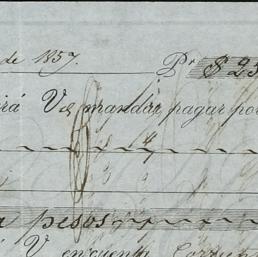 de 1857. Pr $ 25
irá V. mandar pagar por
a pesos
V en cuenta Corrien